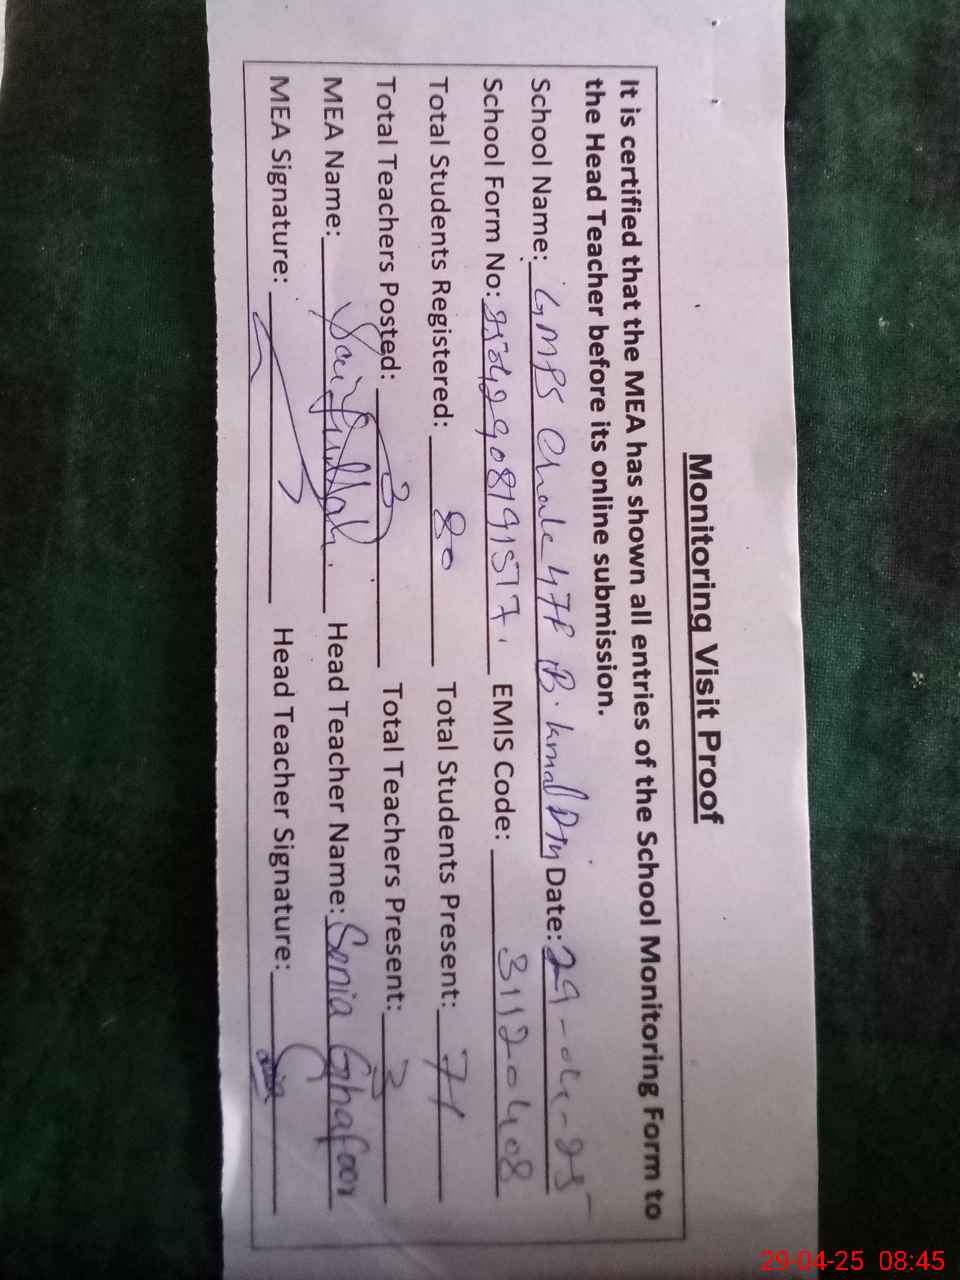 Monitoring Visit Proof
It is certified that the MEA has shown all entries of the School Monitoring Form to
the Head Teacher before its online submission.
School Name: GMPS Chak 47P B. Date: 29-04-25
School Form No: EMIS Code: 31120408
Total Students Registered: 80 Total Students Present: 71
Total Teachers Posted: 3 Total Teachers Present: 3
MEA Name: Saifullah Head Teacher Name: Sonia Ghafoor
MEA Signature: Head Teacher Signature:
29-04-25 08:45